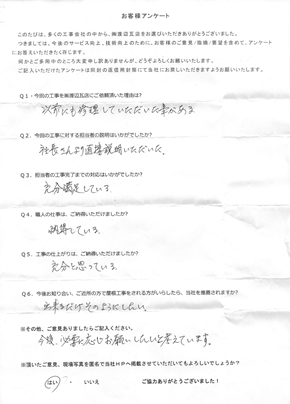 お客様アンケート
このたびは、多くの工事会社の中から、㈱渡辺瓦店をお選びいただきありがとうございました。
つきましては、今後のサービス向上と、技術向上のために、お客様のご意見・指摘・要望を含めて、アンケート
にお答えいただきたく存じます。
何かとご多用中のところ大変申し訳ありませんが、どうぞよろしくお願いいたします。
ご記入いただけたアンケートは同封の返信用封筒にて当社にお戻しいただきますようお願いいたします。
Q1・今回の工事を㈱渡辺瓦店にご依頼頂いた理由は?
以前にも修理していただいた事がある
Q2．今回の工事に対する担当者の説明はいかがでしたか?
社長さんより直接説明いただいた。
Q3．担当者の工事完了までの対応はいかがでしたか?
充分満足している。
Q4．職人の仕事は、ご納得いただけましたか?
納得している。
Q5．工事の仕上がりは、ご満足いただけましたか?
充分と思っている。
Q6．今後お知り合い、ご近所の方で屋根工事をされる方がいらしたら、当社を推薦されますか?
出来るだけそのようにしたい。
※その他、ご意見ありましたらご記入ください。
今後、必要に応じお願いしたいと考えています。
※頂いたご意見、現場写真を匿名で当社HPへ掲載させていただいてもよろしいでしょうか?
はい ・ いいえ ご協力ありがとうございました!